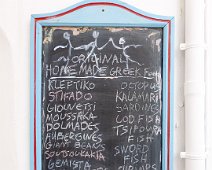 ORIGINAL
HOME MADE GREEK FOOD
KLEFTIKO OCTOPUS
STIFADO KALAMARI
GIOUVETSI SARDINES
MOUSSAKA COD FISH
DOLMADES TSIPOURA
AUBERGINES FISH
GIANT BEANS SWORD
SOUTSOUKAKIA FISH
GEMISTA SHRIMPS